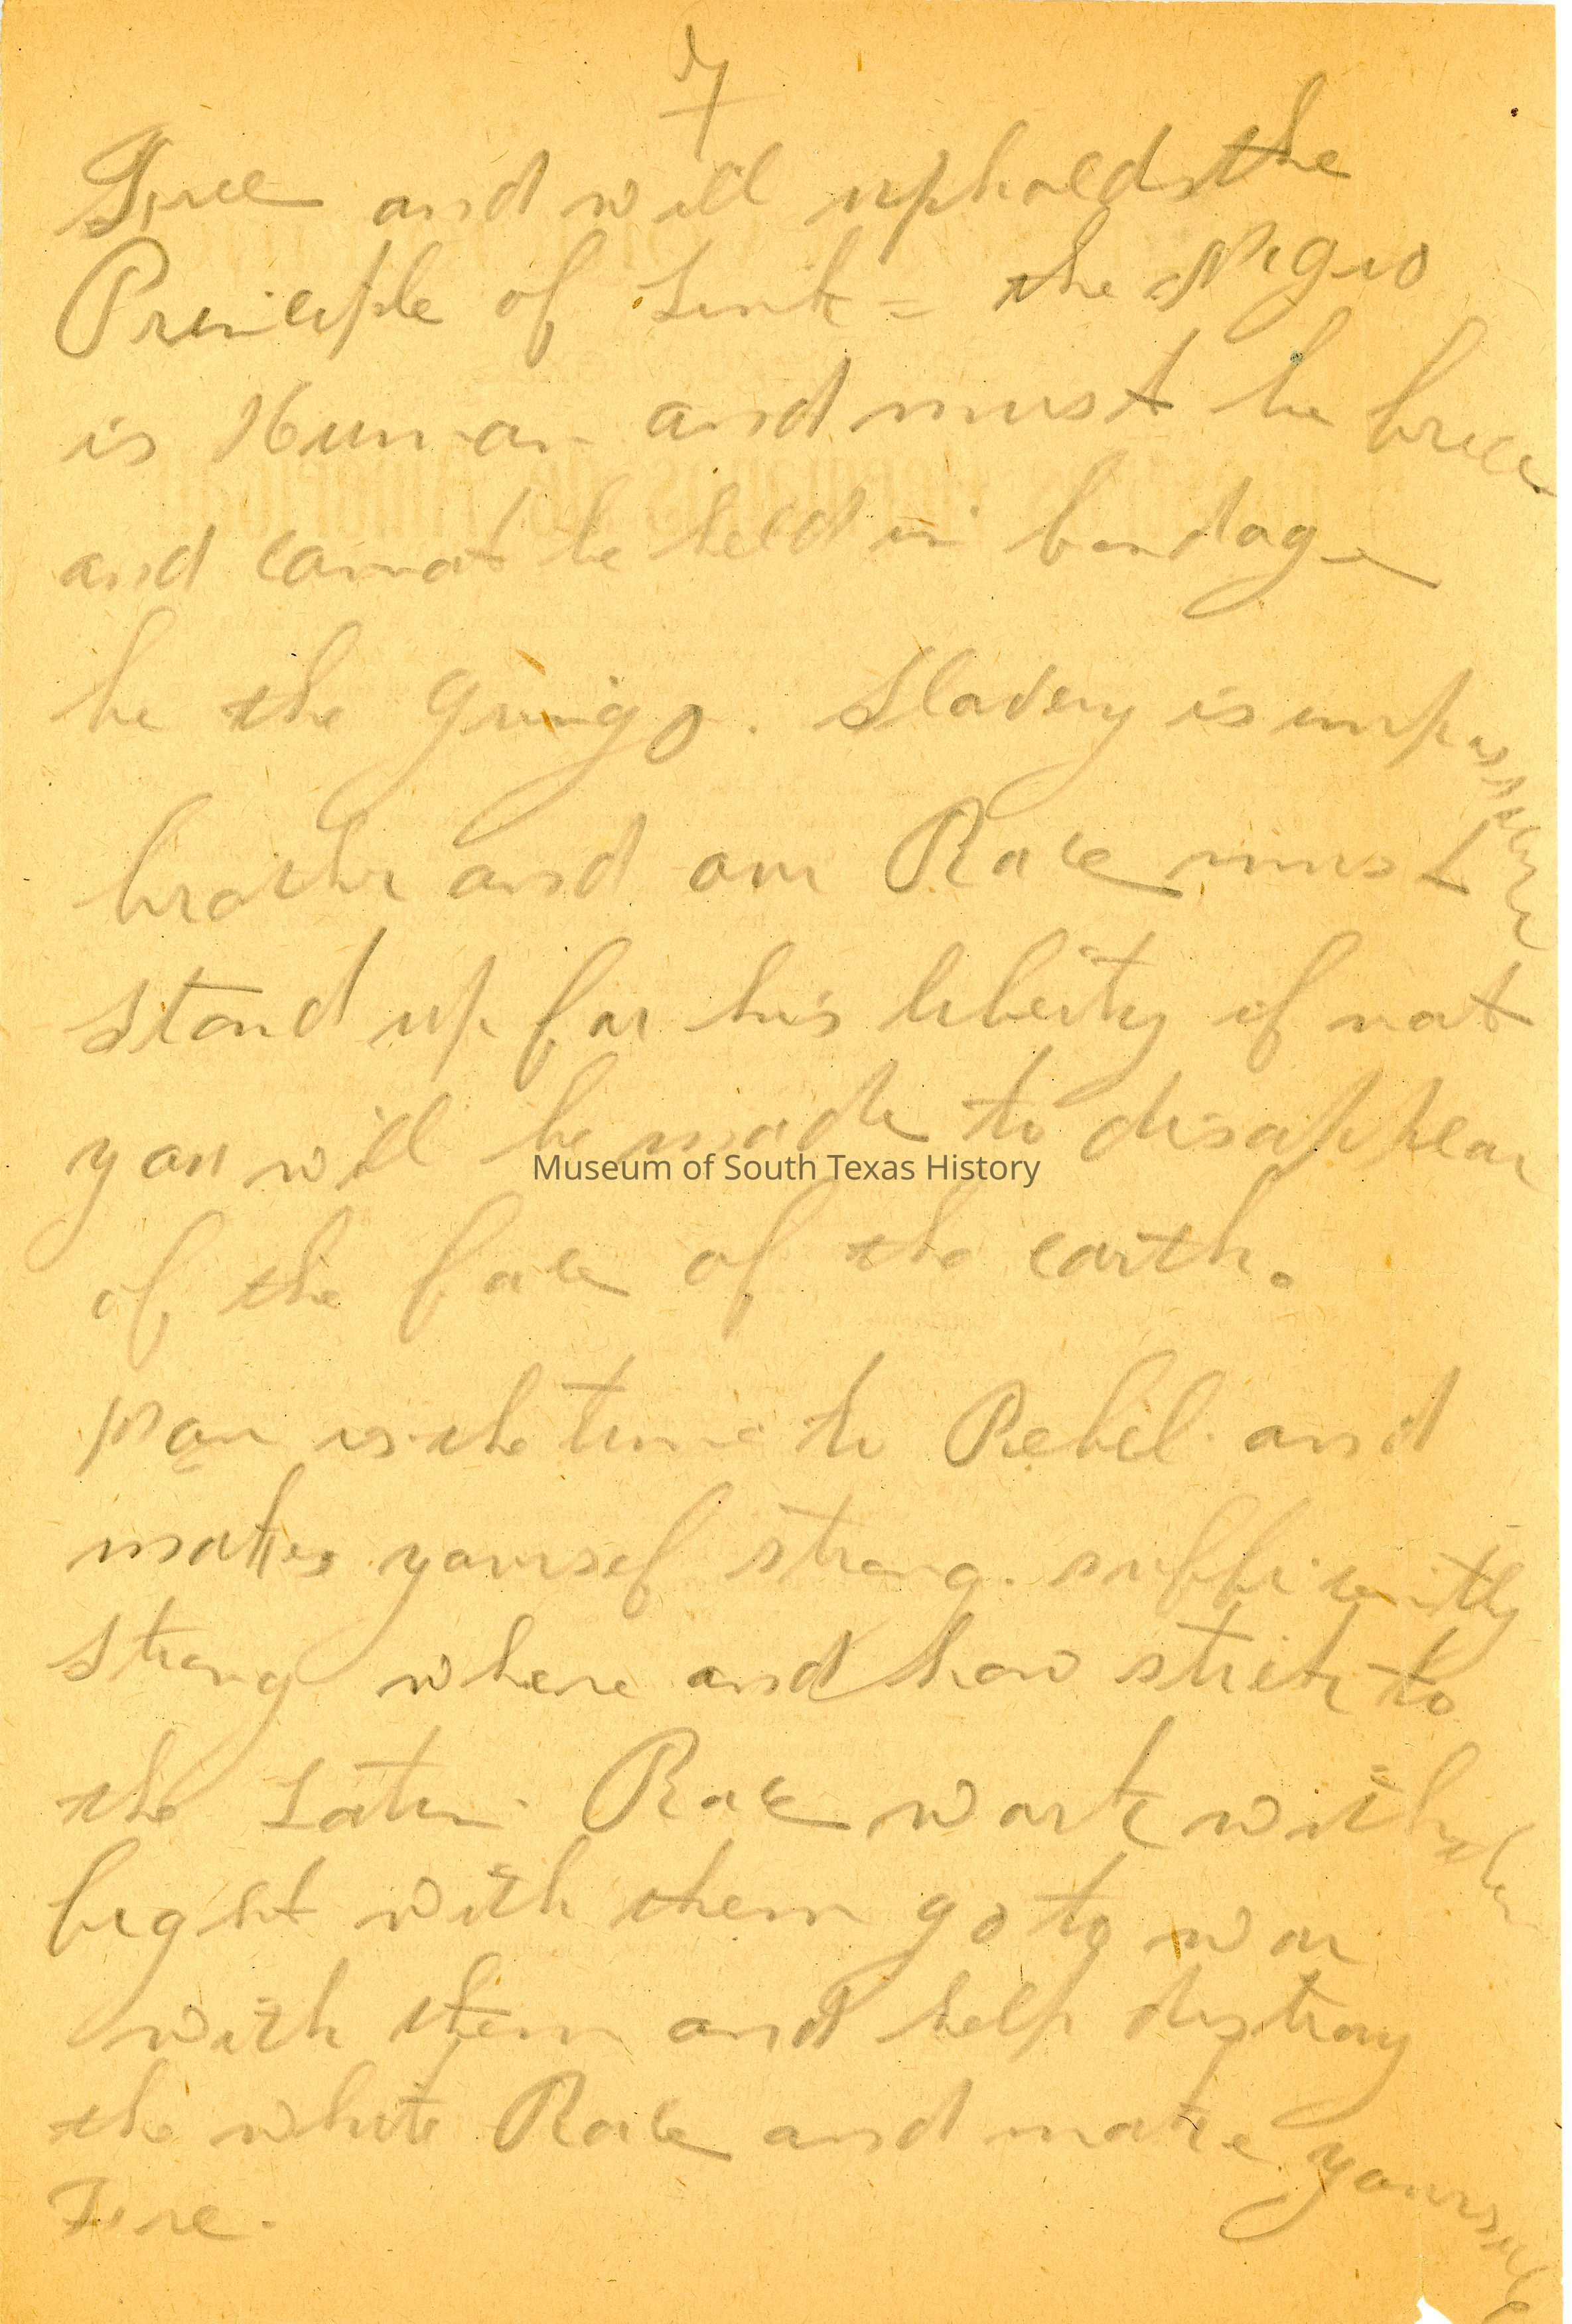 7
Free and will upholds the
Principle of Link = the Negro
is Human and must be free
and cannot be held in bondage
be the gringo. Slavery is impossible
brother and our Race must
stand up for his liberty if not
you will be made to disappear
of the face of the earth.
Now is the time to Rebel. and
makes yoursef strong. sufficiently
strong where and how stick to
the Latin Race work with them
fight with them go to war
with them and help distroy
the white Race and make yourself
Free.
Museum of South Texas History